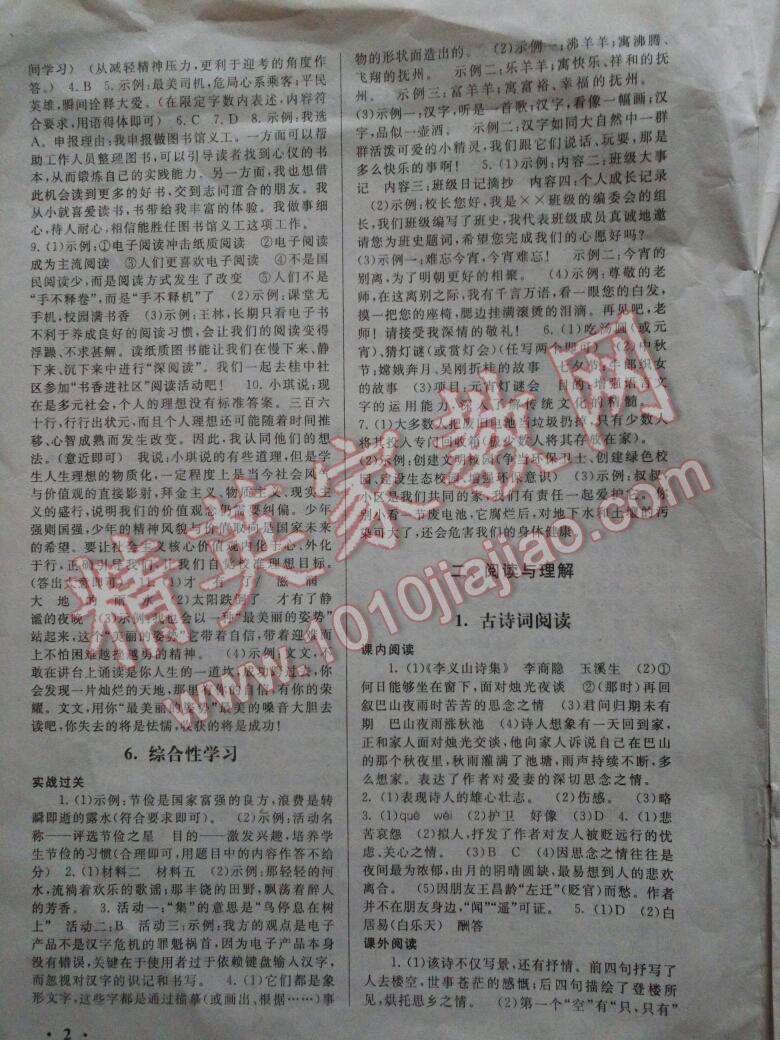 间学习)(从减轻精神压力,更利于迎考的角度作
答。) 4.B 5.示例:最美司机,危局心系乘客;平民
英雄,瞬间诠释大爱。(在限定字数内表述,内容符
合要求,用语得体即可) 6.C 7.D 8.示例:我选
A。申报理由:我申报做图书馆义工。一方面可以帮
助工作人员整理图书,可以引导读者找到心仪的书
本,从而锻炼自己的实践能力。另一方面,我也想借
此机会读到更多的好书,交到志同道合的朋友。我
从小就喜爱读书,书带给我丰富的体验。我做事细
心,待人耐心,相信能胜任图书馆义工这项工作。
9.(1)示例:①电子阅读冲击纸质阅读 ②电子阅读
成为主流阅读 ③人们更喜欢电子阅读 ④不是国
民阅读少,而是阅读方式发生了改变 ⑤人们不是
“手不释卷”,而是“手不释机”了 (2)示例:课堂无
手机,校园满书香 (3)示例:王林,长期只看电子书
不利于养成良好的阅读习惯,会让我们的阅读变得
浮躁、不求甚解。读纸质图书能让我们在慢下来、静
下来、沉下来中进行“深阅读”。我们一起去桂中社
区参加“书香进社区”阅读活动吧! 10.小琪说:现
在是多元社会,个人的理想没有标准答案。三百六
十行,行行出状元,而且个人理想还可能随着时间推
移、心智成熟而发生改变。因此,我认同他们的想
法。(意近即可) 我说:小琪说的有些道理,但是学
生人生理想的物质化,一定程度上是当今社会风气
与价值观的直接影射,拜金主义、物质主义、现实主
义的盛行,说明我们的价值观念仍需要纠偏。少年
强则国强,少年的精神风貌与价值取向是国家未来
的希望。要让社会主义核心价值观内化于心、外化
于行,正确引导我们,让我们自觉校准理想目标。
(答出大意即可) 11.(1)才 有 了 滋 润
大 地 的 雨 水 (2)太阳跌倒了 才有了静
谧的夜晚 (3)示例:我也会以一种“最美丽的姿势”
站起来,这个“美丽的姿势”它带着自信,带着迎难而
上不怕困难越挫越勇的精神。 (4)示例:文文,不
敢在讲台上诵读是你人生的一道坎,成功跨过它,你
会发现一片灿烂的天地,那里有你的自信,有你的荣
耀。文文,用你“最美丽的姿势”最美的嗓音大胆去
读吧,你失去的将是怯懦,收获的将是成功!
6. 综合性学习
实战过关
1.(1)示例:节俭是国家富强的良方,浪费是转
瞬即逝的露水(符合要求即可)。 (2)示例:活动名
称——评选节俭之星 目的——激发兴趣,培养学
生节俭的习惯(合理即可,用题目中的内容作答不给
分) 2.(1)材料二 材料五 (2)示例:那轻轻的河
水,流淌着欢乐的歌谣;那丰饶的田野,飘荡着醉人
的芳香。 3.活动一:“集”的意思是“鸟停息在树
上” 活动二:B 活动三:示例:我方的观点是电子
产品不是汉字危机的罪魁祸首,因为电子产品本身
没有错误,关键在于使用者过于依赖键盘输入汉字,
而忽视对汉字的识记和书写。 4.(1)它们都是象
形文字,这些字都是通过描摹(或画出、根据……)事
物的形状而造出的。 (2)示例一:沸羊羊;寓沸腾、
飞翔的抚州。 示例二:乐羊羊;寓快乐、祥和的抚
州。 示例三:富羊羊;寓富裕、幸福的抚州。
(3)示例一:汉字,听是一首歌;汉字,看像一幅画;汉
字,品似一壶酒。 示例二:汉字如同大自然中一群
群活泼可爱的小精灵,我们跟它们说话、玩耍,那是
多么快乐的事啊! 5.(1)示例:内容二:班级大事
记 内容三:班级日记摘抄 内容四:个人成长记录
(2)示例:校长您好,我是××班级的编委会的组
长,我们班级编写了班史,我代表班级成员真诚地邀
请您为班史题词,希望您完成我们的心愿好吗?
(3)示例一:难忘今宵,今宵难忘! 示例二:今宵的
别离,为了明朝更好的相聚。 (4)示例:尊敬的老
师,在这离别之际,我有千言万语,看一眼您的白发,
摸一把您的座椅,腮边挂满滚烫的泪滴。再见吧,老
师!请接受我深情的敬礼! 6.(1)吃汤圆(或元
宵)、猜灯谜(或赏灯会)(任写两个即可) (2)中秋
节:嫦娥奔月、吴刚折桂的故事 七夕节:牛郎织女
的故事 (3)项目:元宵灯谜会 目的:增强语言文
字的运用能力,深入了解传统文化的精髓。
7.(1)大多数人把废旧电池当垃圾扔了,只有少数人
将其投入专门回收箱(极少数人将其存放在家)。
(2)示例:创建文明校园(争当环保卫士、创建绿色校
园、建设生态校园、增强环保意识) (3)示例:叔叔,
小区是我们共同的家,我们有责任一起爱护它。你
别小看一节废电池,它腐烂后,对地下水和土壤的污
染可大了,还会危害我们的身体健康。
二、阅读与理解
1. 古诗词阅读
课内阅读
1.(1)《李义山诗集》 李商隐 玉溪生 (2)①
何日能够坐在窗下,面对烛光夜谈 ②(那时)再回
叙巴山夜雨时苦苦的思念之情 (3)君问归期未有
期 巴山夜雨涨秋池 (4)诗人想象有一天回到家,
正和家人面对烛光交谈,他向家人诉说自己在巴山
的那个秋夜里,秋雨灌满了池塘,雨声持续不断,多
么想家。表达了作者对爱妻的深切思念之情。
2.(1)表现诗人的雄心壮志。 (2)伤感。 (3)略
3.(1)quē wéi (2)护卫 好像 (3)D 4.(1)悲
苦哀怨 (2)拟人,抒发了作者对友人被贬远行的忧
虑、关心之情。 (3)B C (4)因思念之情往往是
夜间最为浓郁,由月的阴晴圆缺,最易想到人生的悲
欢离合。 (5)因朋友王昌龄“左迁”(贬官)而愁。作者
并不在朋友身边,“闻”“遥”可证。 5.(1)D (2)白
居易(白乐天) 酬答
课外阅读
1.(1)该诗不仅写景,还有抒情。前四句抒写了
人去楼空,世事苍茫的感慨;后四句描绘了登楼所
见,烘托思乡之情。 (2)第一个“空”有“只,只有”
· 2 ·
精英家教网
www.1010jiajiao.com